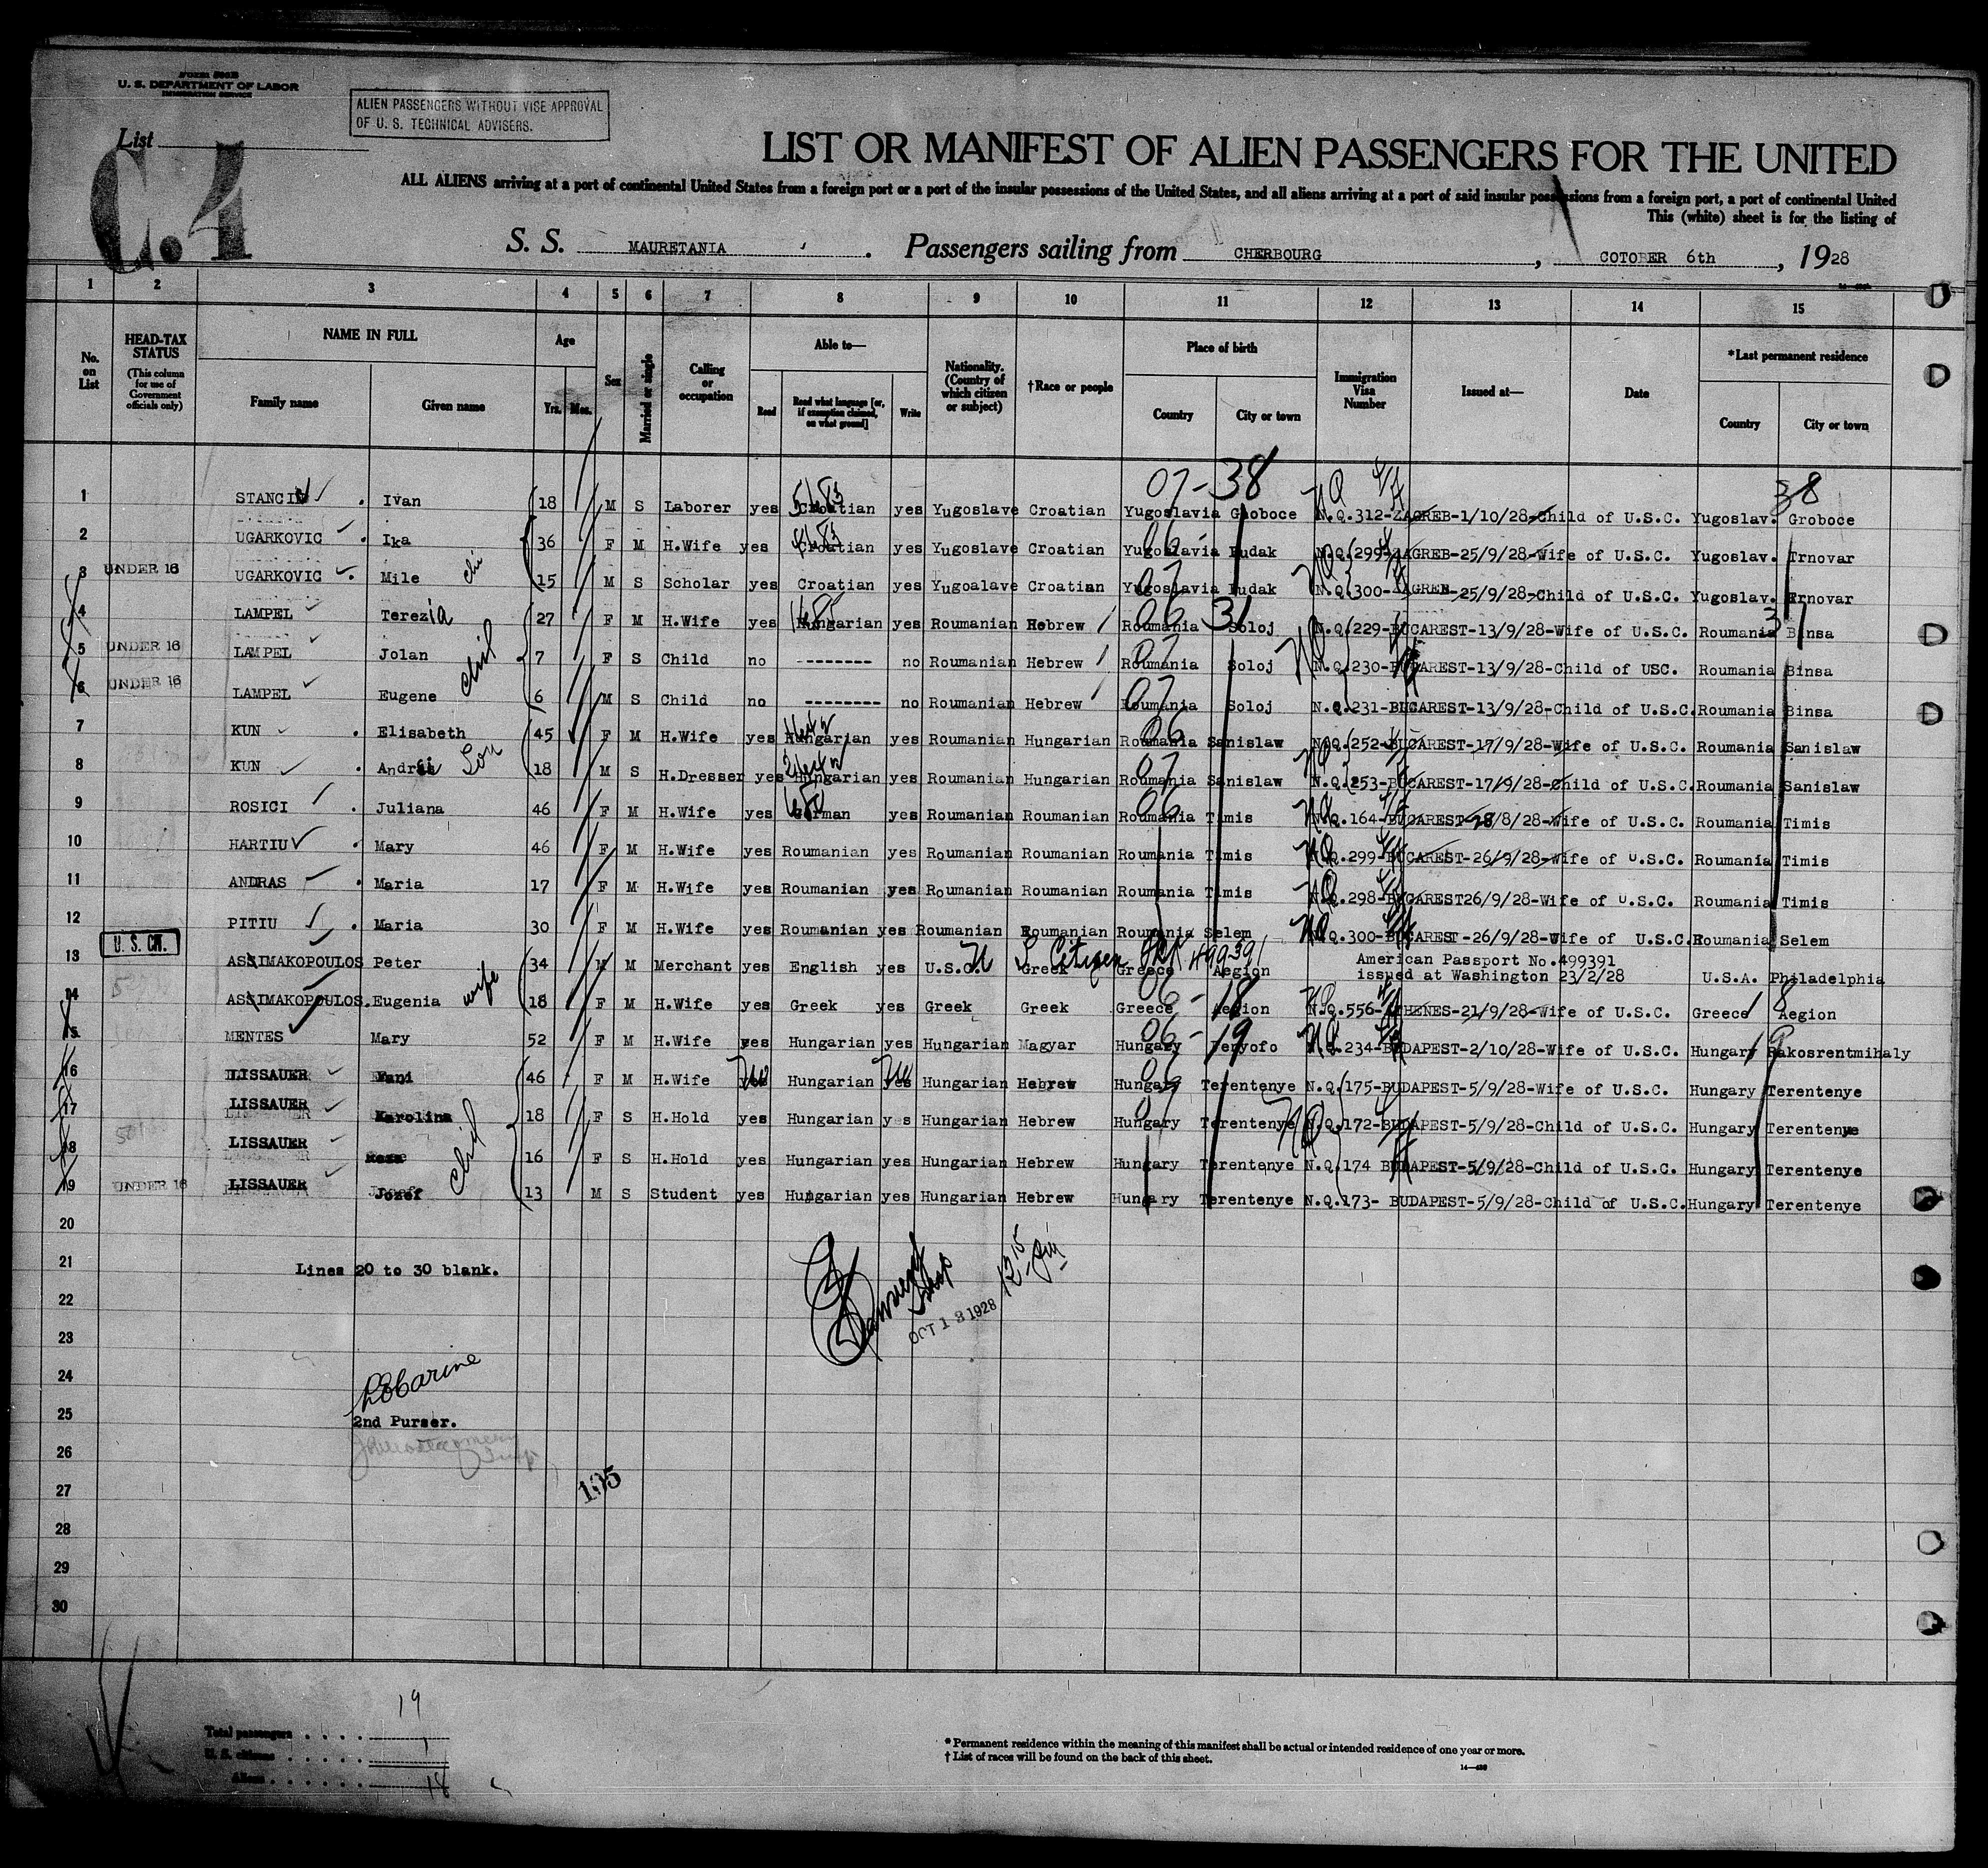 FORM 500B
U. S. DEPARTMENT OF LABOR
IMMIGRATION SERVICE
ALIEN PASSENGERS WITHOUT VISE APPROVAL
OF U. S. TECHNICAL ADVISERS.
List
C.4
LIST OR MANIFEST OF ALIEN PASSENGERS FOR THE UNITED
ALL ALIENS arriving at a port of continental United States from a foreign port or a port of the insular possessions of the United States, and all aliens arriving at a port of said insular possessions from a foreign port, a port of continental United
This (white) sheet is for the listing of
S. S. MAURETANIA . Passengers sailing from CHERBOURG , COTOBER 6th , 1928
1 2 3 4 5 6 7 8 9 10 11 12 13 14 15
No. on List
HEAD-TAX STATUS
(This column for use of Government officials only)
NAME IN FULL
Family name Given name
Age
Yrs. Mos.
Sex
Married or single
Calling or occupation
Able to—
Read Read what language [or, if exemption claimed, on what ground] Write
Nationality. (Country of which citizen or subject)
†Race or people
Place of birth
Country City or town
Immigration Visa Number
Issued at—
Date
*Last permanent residence
Country City or town
07-38 38
1 Ivan 18 M S Laborer yes Croatian yes Yugoslave Croatian Yugoslavia Groboce N.Q.312-ZAGREB-1/10/28-Child of U.S.C. Yugoslav. Groboce
2 UGARKOVIC Ika 36 F M H.Wife yes Croatian yes Yugoslave Croatian Yugoslavia Pudak N.Q.299-ZAGREB-25/9/28-Wife of U.S.C. Yugoslav. Trnovar
3 UNDER 16 UGARKOVIC Mile 15 M S Scholar yes Croatian yes Yugoalave Croatian Yugoslavia Pudak N.Q.300-ZAGREB-25/9/28-Child of U.S.C. Yugoslav. Trnovar
4 LAMPEL Terezia 27 F M H.Wife yes Hungarian yes Roumanian Hebrew Roumania 31 Soloj N.Q.229-BUCAREST-13/9/28-Wife of U.S.C. Roumania Binsa
5 UNDER 16 LAMPEL Jolan chil 7 F S Child no -------- no Roumanian Hebrew Roumania Soloj N.Q.230-BUCAREST-13/9/28-Child of USC. Roumania Binsa
6 UNDER 16 LAMPEL Eugene 6 M S Child no -------- no Roumanian Hebrew Roumania Soloj N.Q.231-BUCAREST-13/9/28-Child of U.S.C. Roumania Binsa
7 KUN Elisabeth 45 F M H.Wife yes Hungarian yes Roumanian Hungarian Roumania Sanislaw N.Q.252-BUCAREST-17/9/28-Wife of U.S.C. Roumania Sanislaw
8 KUN Son 18 M S H.Dresser yes Hungarian yes Roumanian Hungarian Roumania Sanislaw N.Q.253-BUCAREST-17/9/28-Child of U.S.C. Roumania Sanislaw
9 ROSICI Juliana 46 F M H.Wife yes German yes Roumanian Roumanian Roumania Timis N.Q.164-BUCAREST-28/8/28-Wife of U.S.C. Roumania Timis
10 HARTIU Mary 46 F M H.Wife yes Roumanian yes Roumanian Roumanian Roumania Timis N.Q.299-BUCAREST-26/9/28-Wife of U.S.C. Roumania Timis
11 ANDRAS Maria 17 F M H.Wife yes Roumanian yes Roumanian Roumanian Roumania Timis N.Q.298-BUCAREST26/9/28-Wife of U.S.C. Roumania Timis
12 PITIU Maria 30 F M H.Wife yes Roumanian yes Roumanian Roumanian Roumania Selem N.Q.300-BUCAREST-26/9/28-Wife of U.S.C. Roumania Selem
13 U. S. CIT. ASSIMAKOPOULOS Peter 34 M M Merchant yes English yes U.S.C. Greek Greece Aegion American Passport No.499391
issued at Washington 23/2/28 U.S.A. Philadelphia
U S Citizen 499391
14 ASSIMAKOPOULOS. Eugenia wife 18 F M H.Wife yes Greek yes Greek Greek Greece Aegion N.Q.556-ATHENES-21/9/28-Wife of U.S.C. Greece Aegion
15 MENTES Mary 52 F M H.Wife yes Hungarian yes Hungarian Magyar Hungary Fenyofo N.Q.234-BUDAPEST-2/10/28-Wife of U.S.C. Hungary Rakosrentmihaly
16 LISSAUER Fani 46 F M H.Wife no Hungarian no Hungarian Hebrew Hungary Terentenye N.Q.175-BUDAPEST-5/9/28-Wife of U.S.C. Hungary Terentenye
17 LISSAUER Karolina 18 F S H.Hold yes Hungarian yes Hungarian Hebrew Hungary Terentenye N.Q.172-BUDAPEST-5/9/28-Child of U.S.C. Hungary Terentenye
18 LISSAUER chil 16 F S H.Hold yes Hungarian yes Hungarian Hebrew Hungary Terentenye N.Q.174 BUDAPEST-5/9/28-Child of U.S.C. Hungary Terentenye
19 UNDER 16 LISSAUER Jozef 13 M S Student yes Hungarian yes Hungarian Hebrew Hungary Terentenye N.Q.173- BUDAPEST-5/9/28-Child of U.S.C. Hungary Terentenye
20
21 Lines 20 to 30 blank.
22
OCT 13 1928
23
24
25 2nd Purser.
26
27 105
28
29
30
Total passengers . . . . 19
U. S. citizens . . . . . 1
Aliens . . . . . . 18
* Permanent residence within the meaning of this manifest shall be actual or intended residence of one year or more.
† List of races will be found on the back of this sheet.
14—430